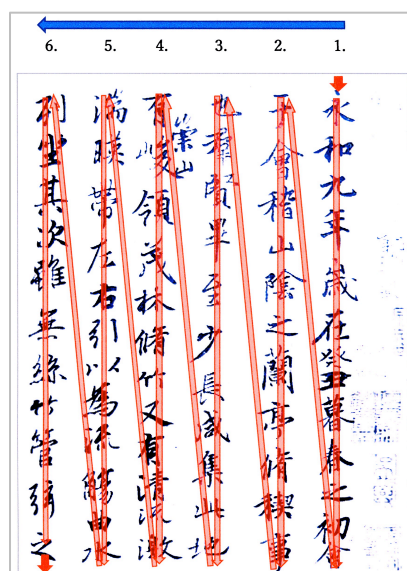 6. 5. 4. 3. 2. 1.
永和九年歲在癸丑暮春之初會
于會稽山陰之蘭亭脩稧事
也羣賢畢至少長咸集此地
有崇山峻領茂林脩竹又有清流激
湍暎帶左右引以為流觴曲水
列坐其次雖無絲竹管弦之